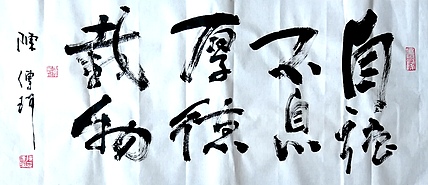 自強
不息
厚德
載物
陳傳